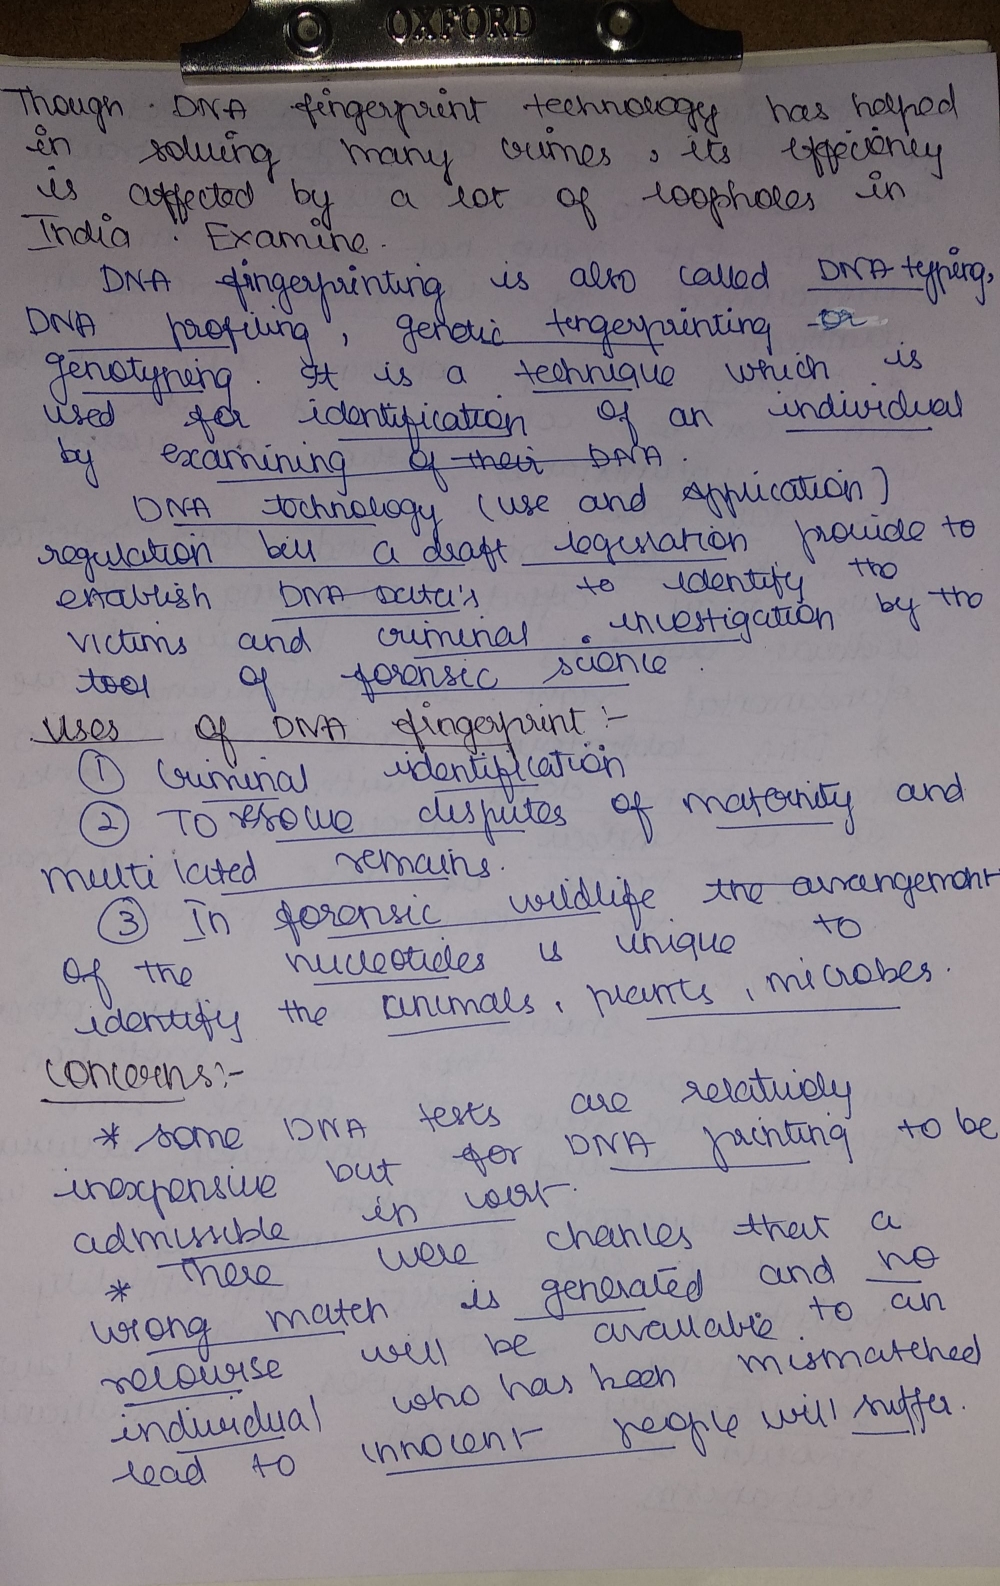 OXFORD
Though . DNA fingerprint technology has helped
in solving many crimes , its effeciency
is affected by a lot of loopholes in
India . Examine.
DNA fingerprinting is also called DNA typing,
DNA profiling , genetic fingerprinting or
genotyping. It is a technique which is
used for identification of an individual
by examining of their DNA .
DNA technology (use and application)
regulation bill a draft legislation provide to
establish DNA Data's to identify the
victims and criminal . investigation by the
tool of forensic science .
Uses of DNA fingerprint :-
① Criminal identification
② To resolve disputes of maternity and
mutilated remains.
③ In forensic wildlife the arrangement
of the nucleotides is unique to
identify the animals, plants , microbes.
Concerns:-
* some DNA tests are relatively
inexpensive but for DNA printing to be
admissible in court.
* There were chances that a
wrong match is generated and no
recourse will be available to an
individual who has been mismatched
lead to innocent people will suffer.